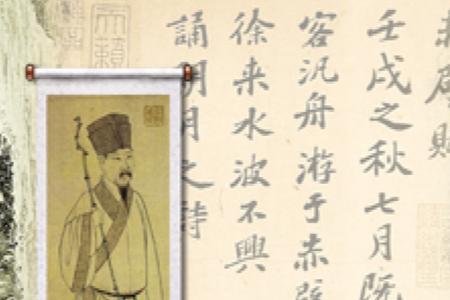 赤壁賦
壬戌之秋七月既
客汎舟游于赤壁
徐来水波不興
誦明月之詩